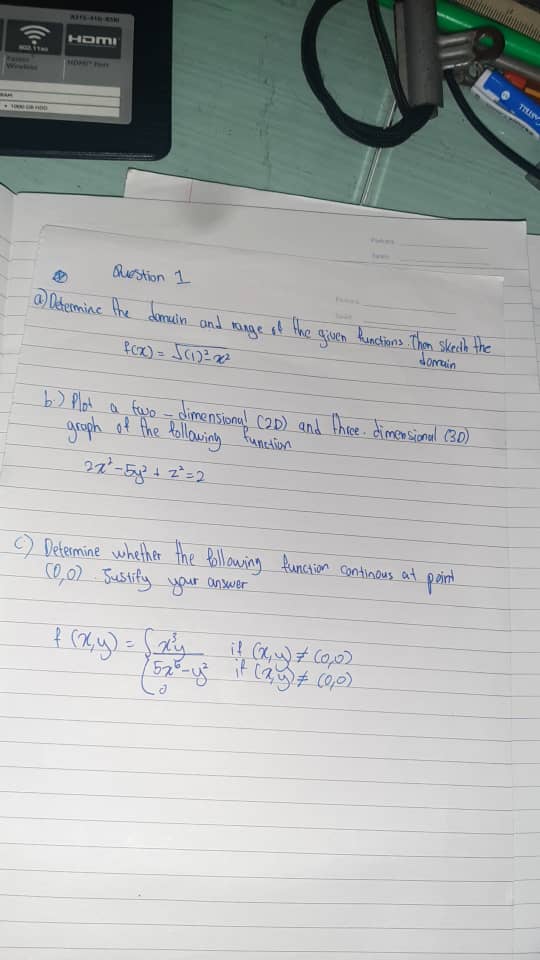 802.11ac
HDMI
HDMI™ Port
• 1000 GB HDD
Question 1
a) Determine the domain and range of the given functions. Then skecth the
domain
f(x) = √(1)² x²
b.) Plot a two - dimensional (2D) and three. dimensional (3D)
graph of the following function
2x² - 5y² + z² = 2
c) Determine whether the following function continous at point
(0,0). Justify your answer
f (x,y) = { x³y if (x,y) ≠ (0,0)
5x⁶ - y² if (x,y) ≠ (0,0)
0